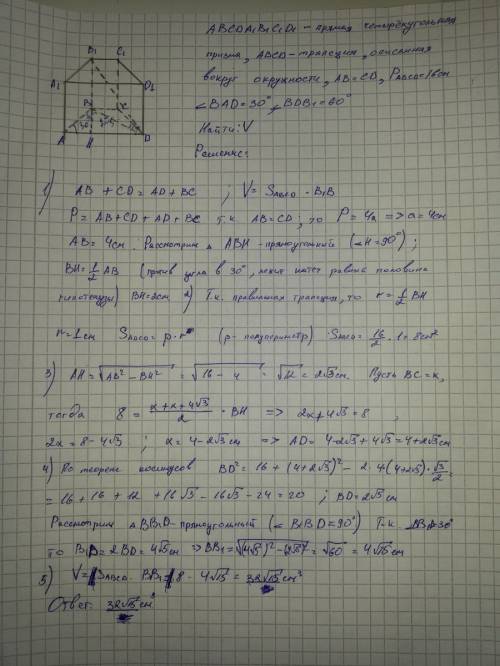 ABCDA1B1C1D1 - прямая четырёхугольная
призма, ABCD - трапеция, описанная
вокруг окружности, AB = CD, PABCD = 16см
∠BAD = 30°, ∠BDB1 = 60°
Найти: V
Решение:
B1 C1
A1 D1
B 2
30°
A H D
1) AB + CD = AD + BC ; V = SABCD · B1B
P = AB + CD + AD + BC т.к. AB = CD, то P = 4a => a = 4см
AB = 4см. Рассмотрим Δ ABH - прямоугольный (∠H = 90°);
BH = 1/2 AB (против угла в 30°, лежит катет равный половина
гипотенузы) BH = 2см 2) Т.к. правильная трапеция, то r = 1/2 BH
r = 1см SABCD = p · r (p - полупериметр) SABCD = 16/2 · 1 = 8см²
3) AH = √(AB² - BH²) = √(16 - 4) = √12 = 2√3 см. Пусть BC = x,
тогда 8 = (x + x + 4√3)/2 · BH => 2x + 4√3 = 8 ,
2x = 8 - 4√3 ; x = 4 - 2√3 см => AD = 4 - 2√3 + 4√3 = 4 + 2√3 см
4) По теореме косинусов BD² = 16 + (4 + 2√3)² - 2 · 4(4 + 2√3) · √3/2 =
= 16 + 16 + 12 + 16√3 - 16√3 - 24 = 20 ; BD = 2√5 см
Рассмотрим Δ BB1D - прямоугольный (∠B1BD = 90°) Т.к. ∠B1 = 30°
то B1D = 2BD = 4√5 см => BB1 = √((4√5)² - (2√5)²) = √60 = 4√15 см
5) V = SABCD · BB1 = 8 · 4√15 = 32√15 см³
Ответ: 32√15 см³